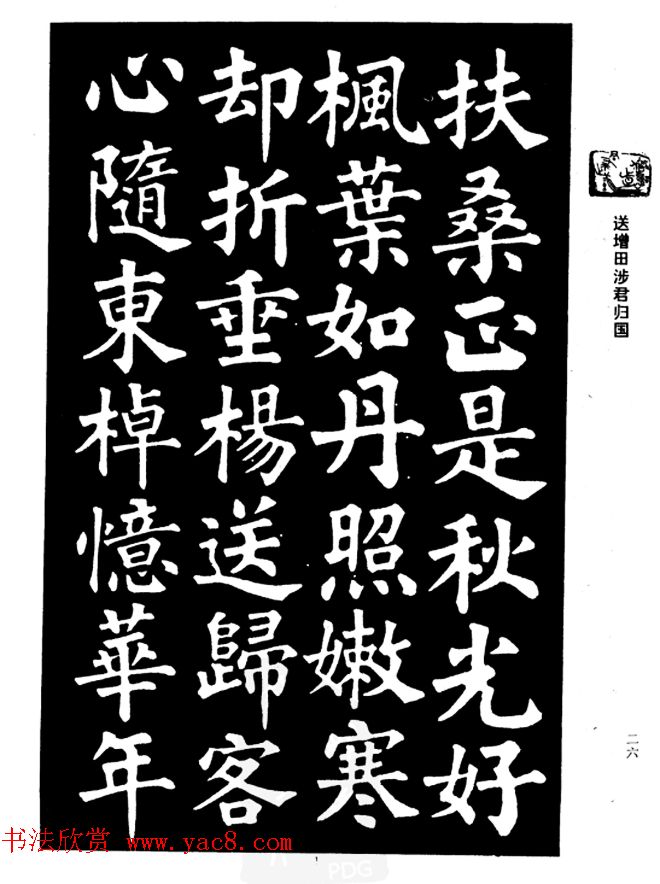 扶桑正是秋光好
楓葉如丹照嫩寒
却折垂楊送歸客
心隨東棹憶華年
送增田涉君归国
二六
书法欣赏 www.yac8.com
1
PDG